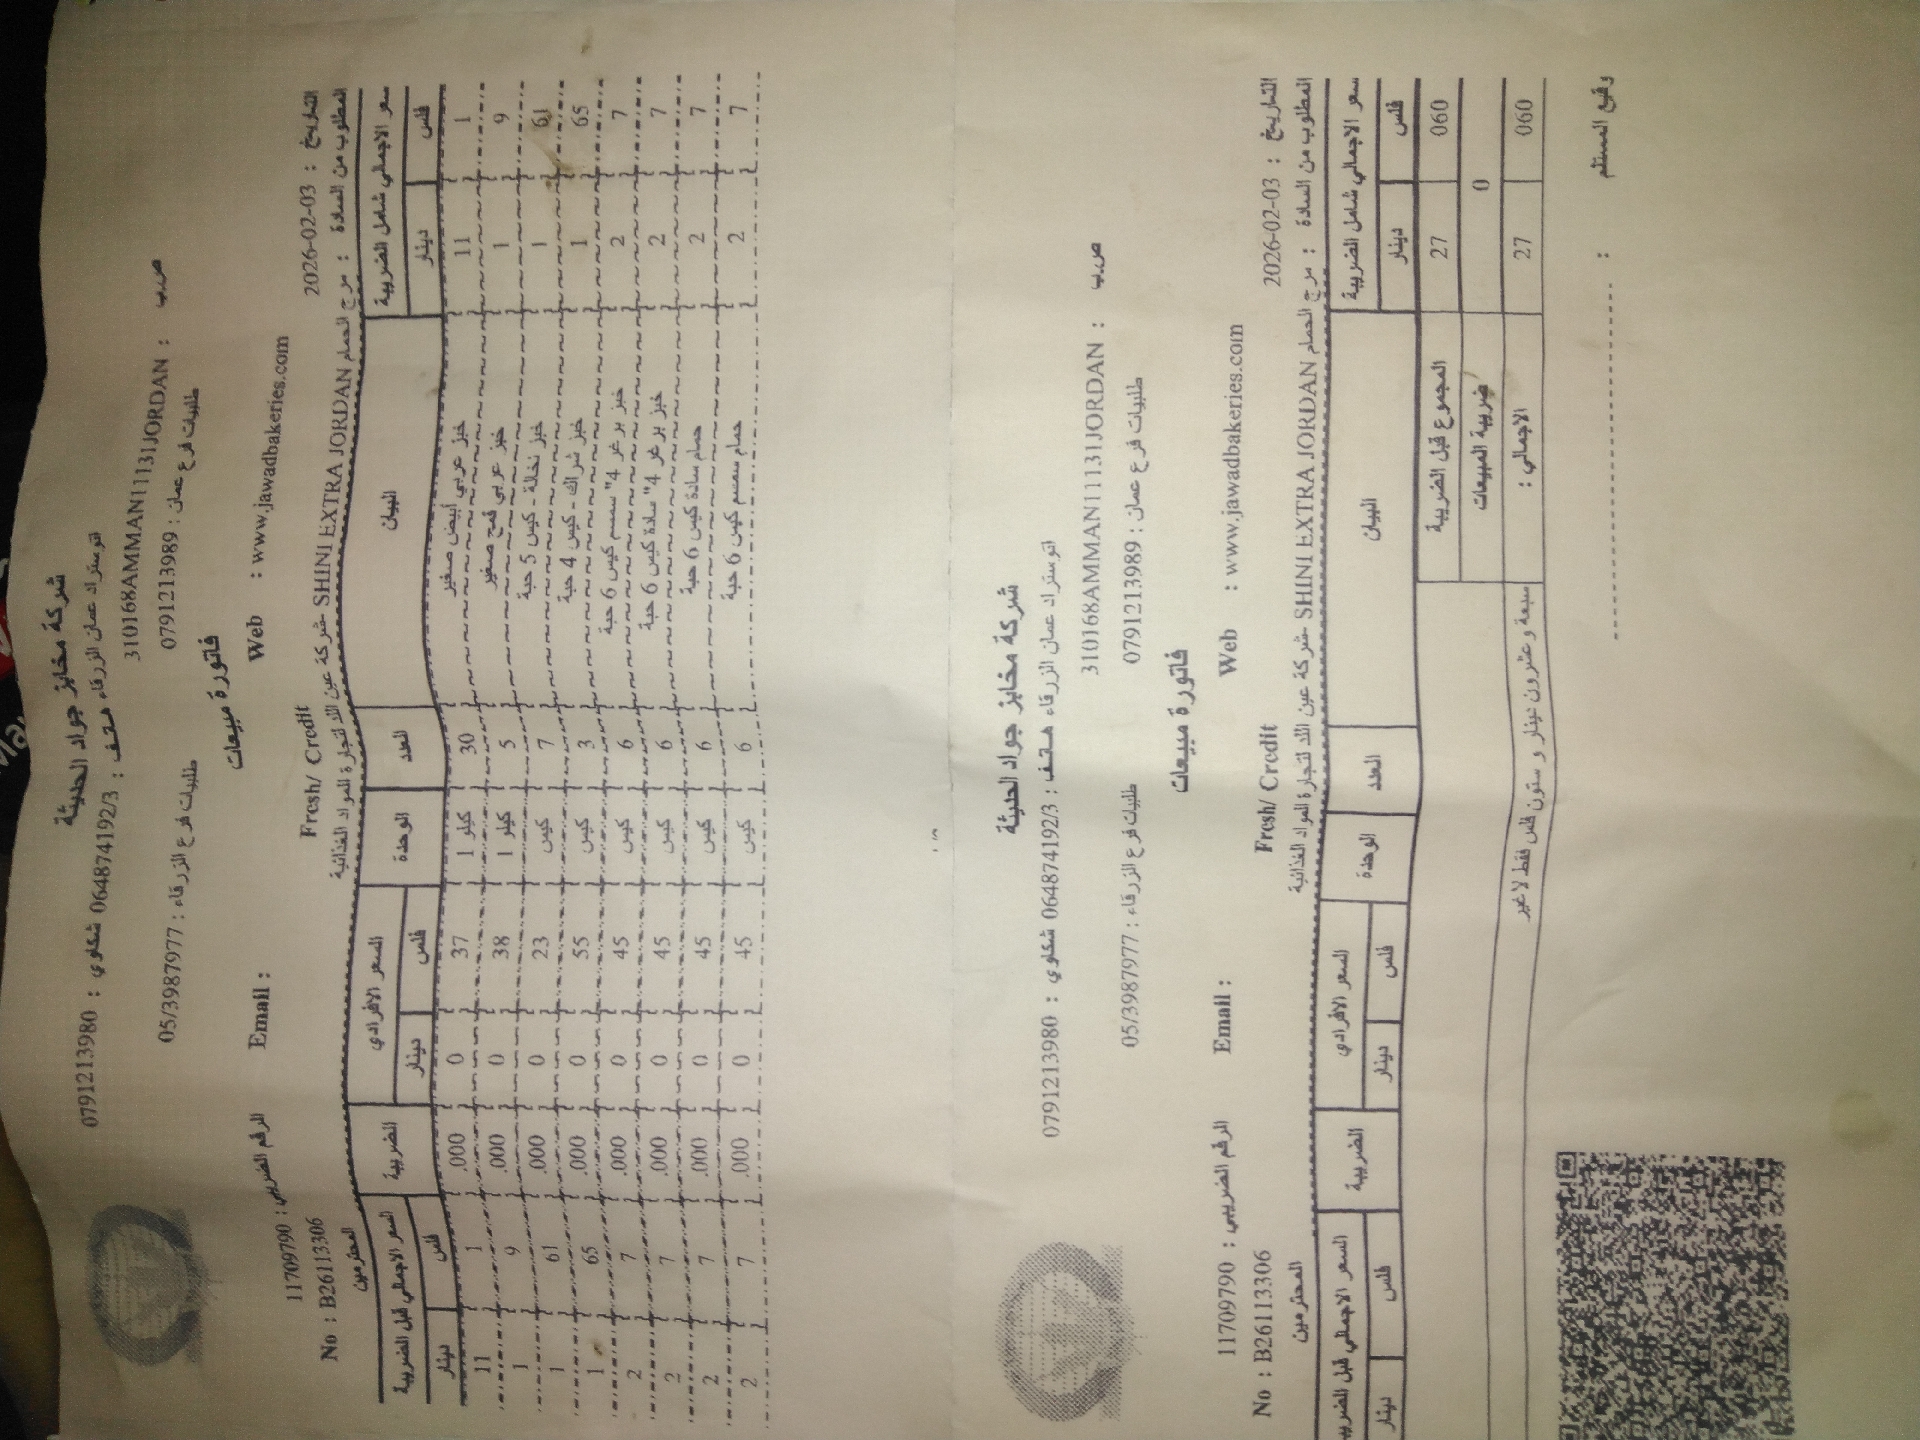 شركة مخابز جواد الحديثة
اتوستراد عمان الزرقاء هاتف : 064874192/3 شكاوي : 0791213980
310168AMMAN11131JORDAN : ص.ب
طلبيات فرع عمان : 0791213989 طلبيات فرع الزرقاء : 05/3987977
فاتورة مبيعات
Web : www.jawadbakeries.com Email : الرقم الضريبي : 11709790
التاريخ : 2026-02-03 Fresh/ Credit No : B26113306
المطلوب من السادة : مرج الحمام SHINI EXTRA JORDAN شركة عين اللد لتجارة المواد الغذائية المحترمين
سعر الاجمالي شامل الضريبة البيان العدد الوحدة السعر الافرادي الضريبة السعر الاجمالي قبل الضريبة
فلس دينار فلس دينار فلس دينار
1 11 خبز عربي أبيض صغير 30 كيلو 1 37 0 .000 1 11
9 1 خبز عربي قمح صغير 5 كيلو 1 38 0 .000 9 1
61 1 خبز نخالة - كيس 5 حبة 7 كيس 23 0 .000 61 1
65 1 خبز شراك - كيس 4 حبة 3 كيس 55 0 .000 65 1
7 2 خبز برغر 4" سمسم كيس 6 حبة 6 كيس 45 0 .000 7 2
7 2 خبز برغر 4" سادة كيس 6 حبة 6 كيس 45 0 .000 7 2
7 2 حمام سادة كيس 6 حبة 6 كيس 45 0 .000 7 2
7 2 حمام سمسم كيس 6 حبة 6 كيس 45 0 .000 7 2
شركة مخابز جواد الحديثة
اتوستراد عمان الزرقاء هاتف : 064874192/3 شكاوي : 0791213980
310168AMMAN11131JORDAN : ص.ب
طلبيات فرع عمان : 0791213989 طلبيات فرع الزرقاء : 05/3987977
فاتورة مبيعات
Web : www.jawadbakeries.com Email : الرقم الضريبي : 11709790
التاريخ : 2026-02-03 Fresh/ Credit No : B26113306
المطلوب من السادة : مرج الحمام SHINI EXTRA JORDAN شركة عين اللد لتجارة المواد الغذائية المحترمين
سعر الاجمالي شامل الضريبة البيان العدد الوحدة السعر الافرادي الضريبة السعر الاجمالي قبل الضريبة
فلس دينار فلس دينار فلس دينار
060 27 المجموع قبل الضريبة
0 ضريبة المبيعات
060 27 الاجمالي : سبعة و عشرون دينار و ستون فلس فقط لاغير
وقيع المستلم :